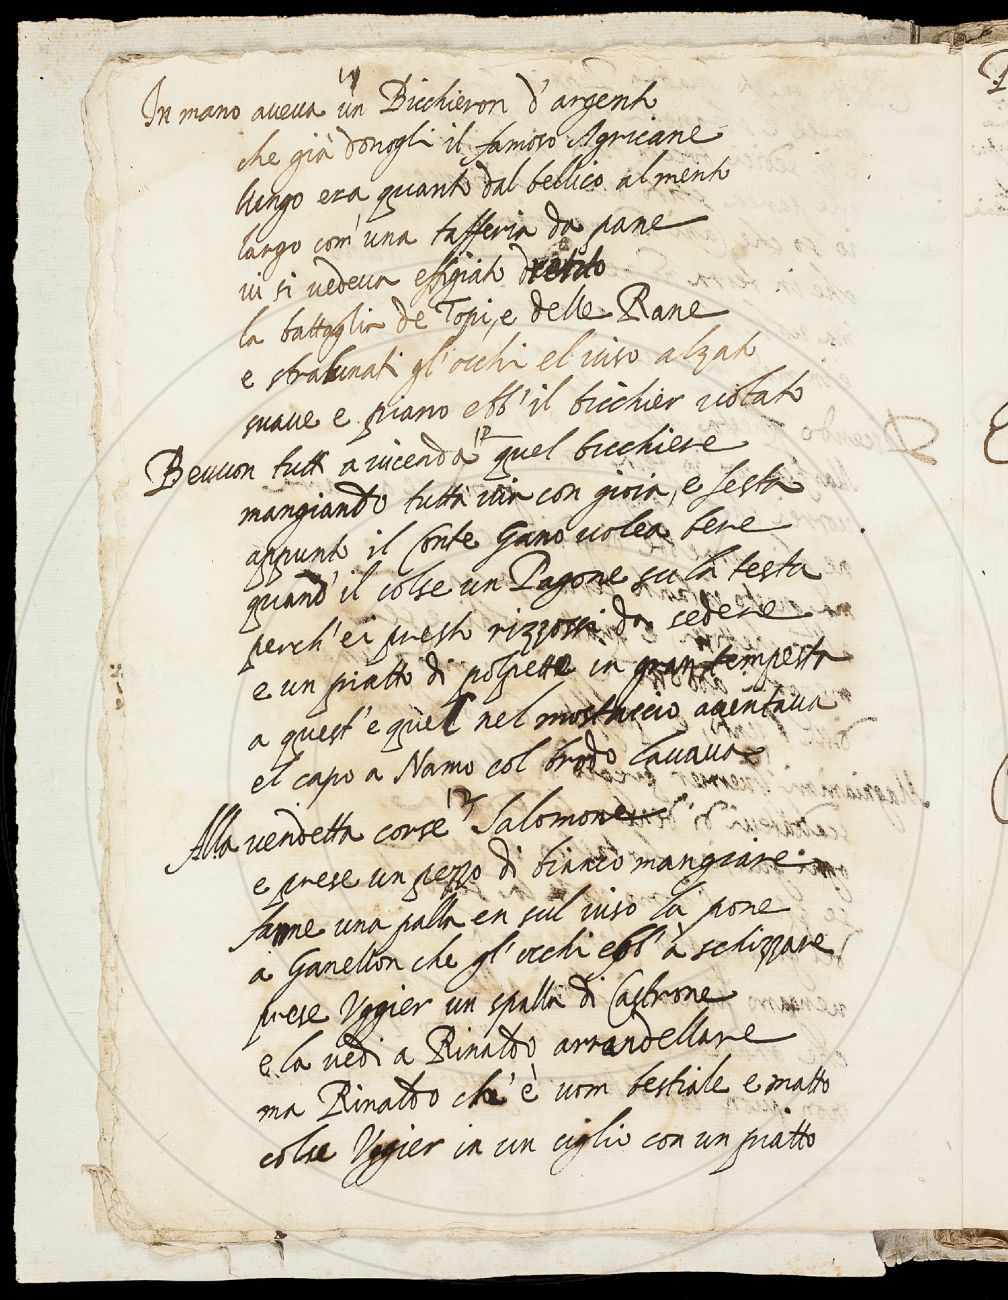 In mano aveva un Bicchieron d'argento
che già donogli il famoso Agricane
lungo era quanto dal bellico al mento
largo com'una tafferia da pane
vi si vedeva effigiato drento
la battaglia de Topi, e delle Rane
e stralunati gl'occhi el viso alzato
suave e piano ebb'il bicchier votato
Bevvon tutti a vicenda quel bicchiere
mangiando tutta via con gioia, e festa
appunto il Conte Gano volea bere
quand'il colse un Pagone su la testa
perch'ei presto rizzossi da sedere
e un piatto di polpette in gran tempesta
a quest'e quel nel mostaccio aventava
el capo a Namo col brodo lavava
Alla vendetta corse Salomone
e prese un pezzo di bianco mangiare
fanne una palla en sul viso la pone
a Ganellon che gl'occhi ebb'à schizzare
prese Uggier un spalla di Castrone
e la vedi a Rinaldo arrandellare
ma Rinaldo ch'è uom bestiale e matto
colse Uggier in un ciglio con un piatto